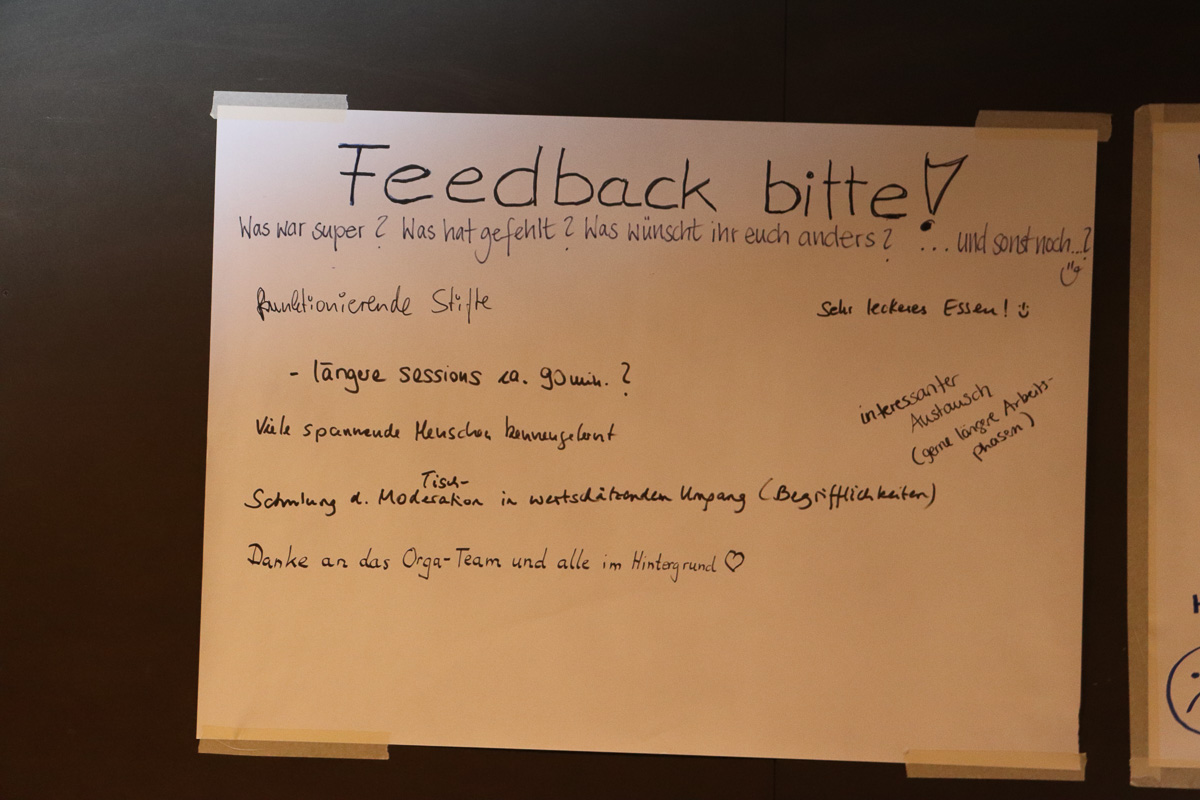 Feedback bitte!
Was war super? Was hat gefehlt? Was wünscht ihr euch anders? ... und sonst noch...?
funktionierende Stifte
Sehr leckeres Essen!
- längere sessions ca. 90 min. ?
interessanter
Austausch
(gerne längere Arbeits-
phasen)
Viele spannende Menschen kennengelernt
Tisch-
Schulung d. Moderation in wertschätzenden Umgang (Begrifflichkeiten)
Danke an das Orga-Team und alle im Hintergrund ♡